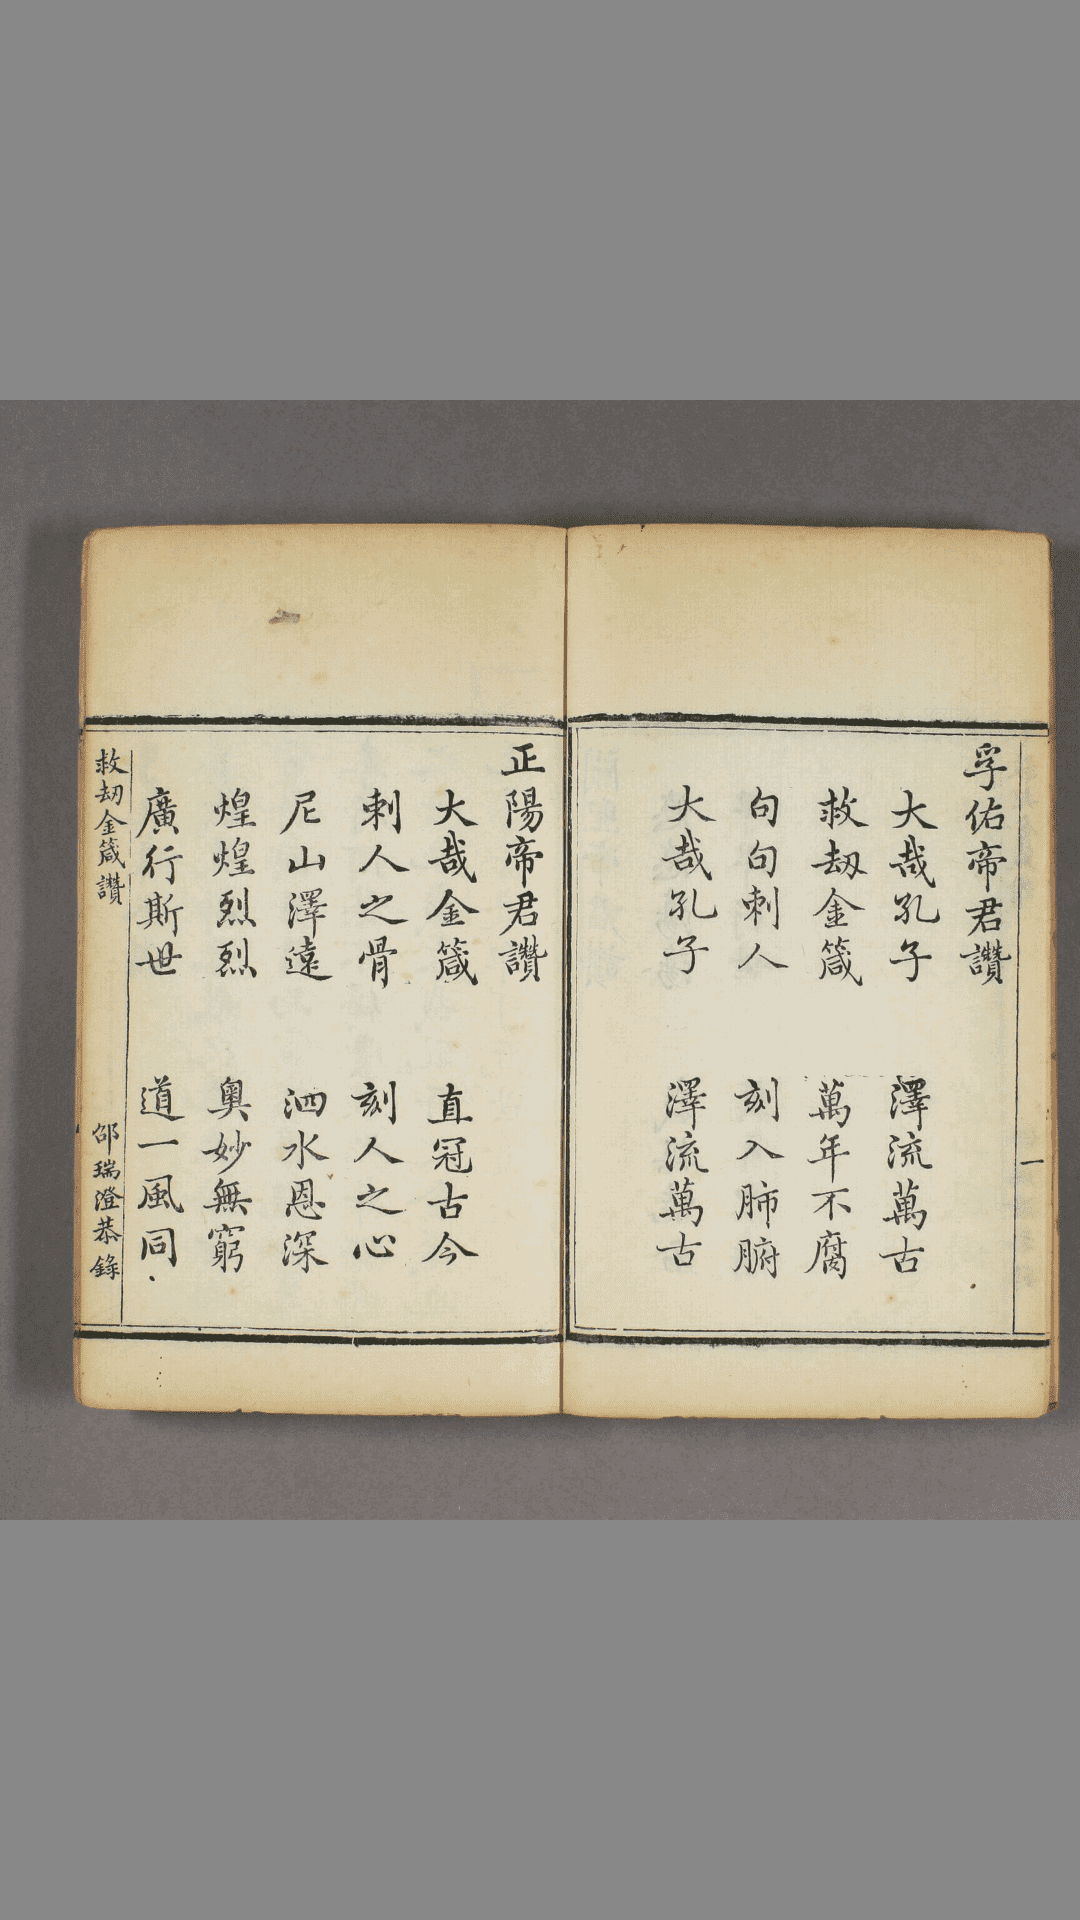 一
孚佑帝君讚
大哉孔子　澤流萬古
救刼金箴　萬年不腐
句句刺人　刻入肺腑
大哉孔子　澤流萬古
正陽帝君讚
大哉金箴　直冠古今
刺人之骨　刻人之心
尼山澤遠　泗水恩深
煌煌烈烈　奧妙無窮
廣行斯世　道一風同
救刼金箴讚　邵瑞澄恭錄